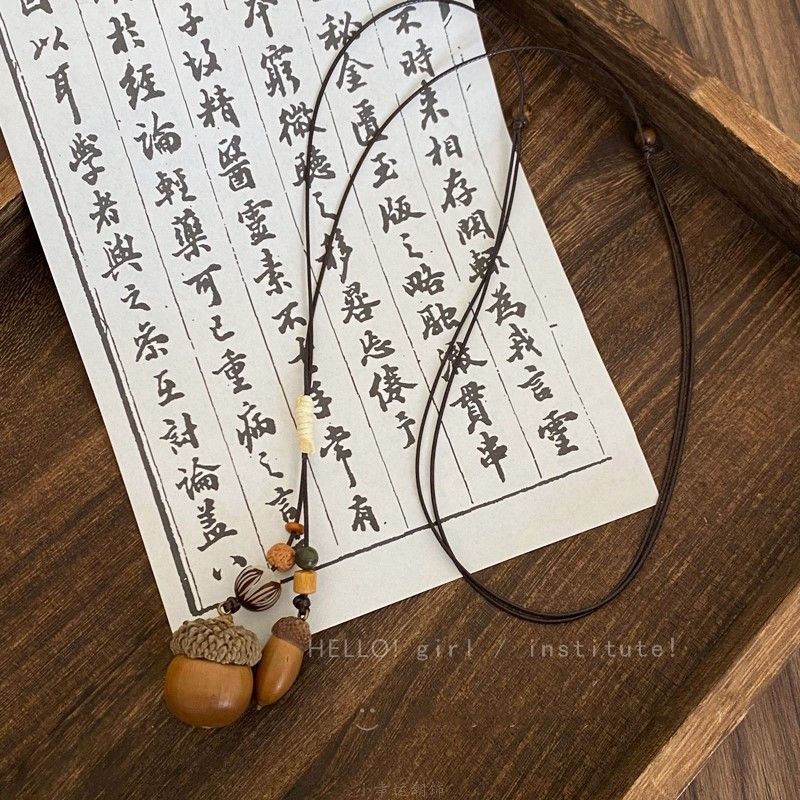 不時来相存閱輒為我言靈
秘金匱玉版之略融澈貫串
本窮微聽之移晷忘倦予
子故精醫靈素不手常有
於經論輕藥可已重病之言
以耳學者與之參互討論蓋八
HELLO! girl / institute!